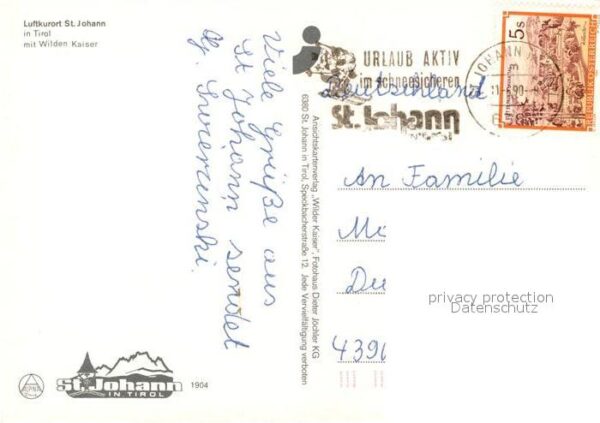 Luftkurort St. Johann
in Tirol
mit Wilden Kaiser
Viele Grüße aus
St Johann sendet
Ansichtskartenverlag „Wilder Kaiser", Fotohaus Dieter Jöchler KG
6380 St. Johann in Tirol, Speckbacherstraße 12. Jede Vervielfältigung verboten
URLAUB AKTIV
im schneesicheren
St. Johann
JOHANN
5s
REPUBLIK ÖSTERREICH
Deutschland
An Familie
4390
privacy protection
Datenschutz
St. Johann
IN TIROL
1904